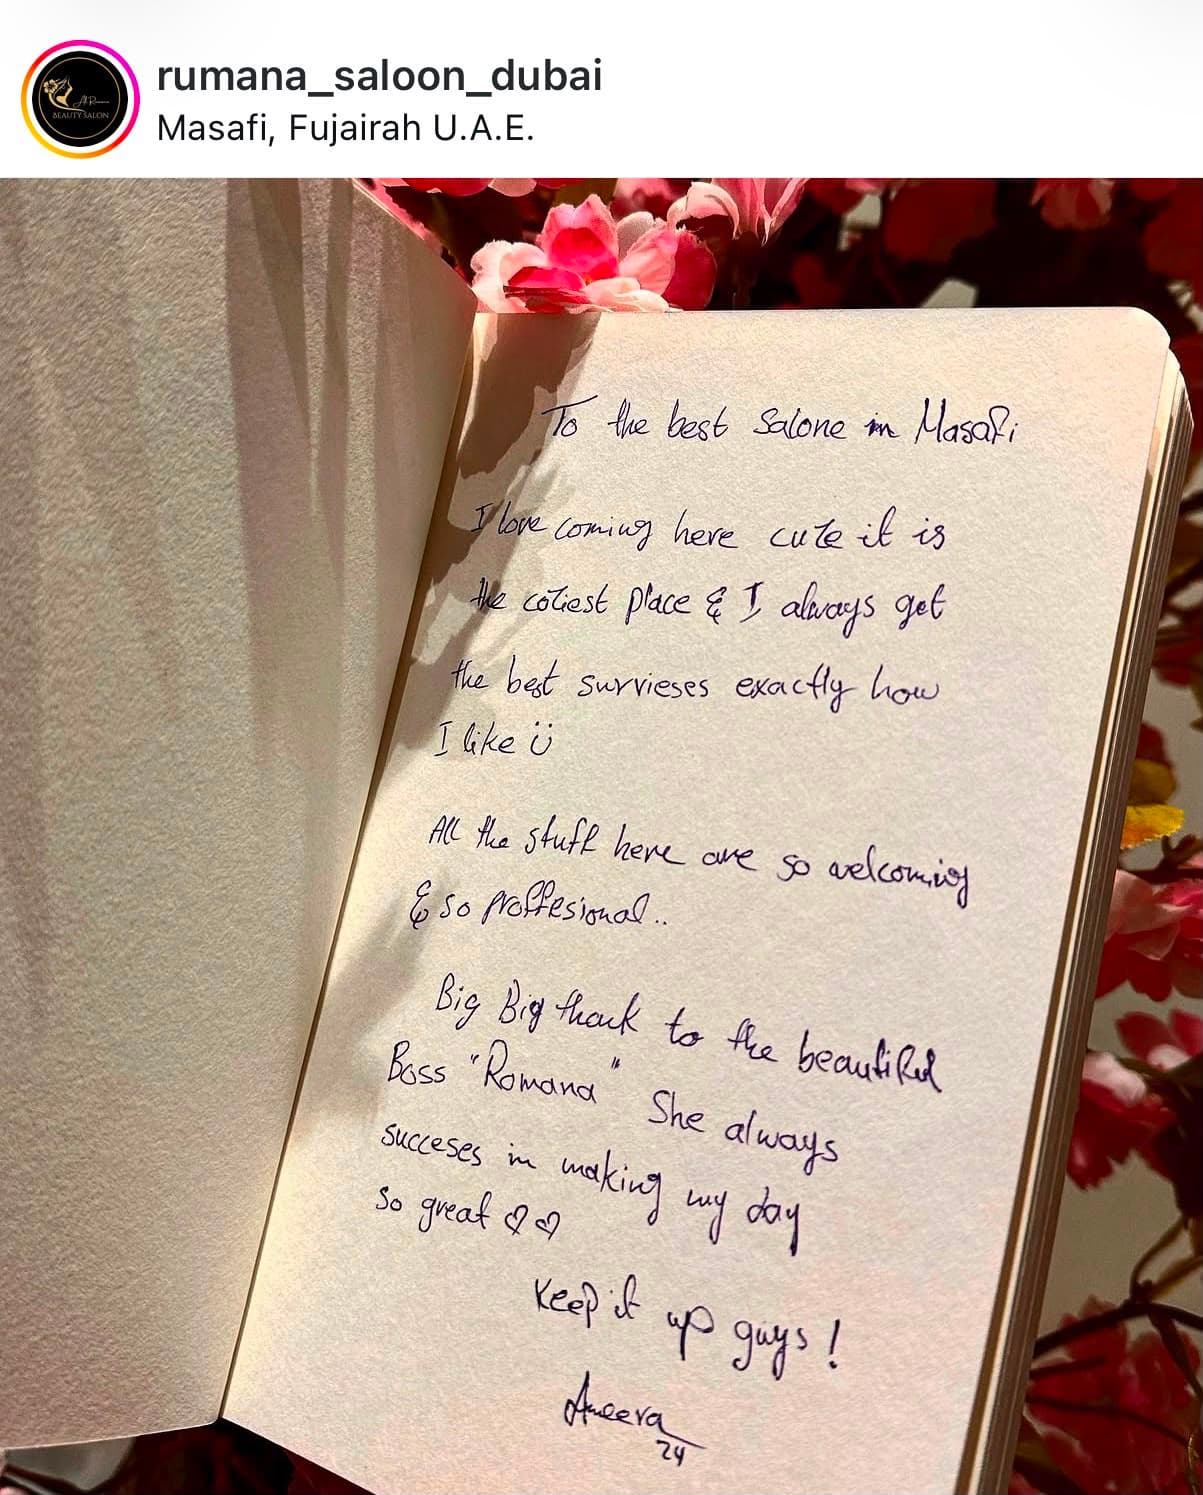 rumana_saloon_dubai
Masafi, Fujairah U.A.E.
BEAUTY SALON
To the best Salone in Masafi
I love coming here cuze it is
the coziest place & I always get
the best survieses exactly how
I like ü
All the stuff here are so welcoming
& so proffesional..
Big Big thank to the beautiful
Boss "Romana" She always
succeses in making my day
so great ♡♡
Keep it up guys!
Ameera
24